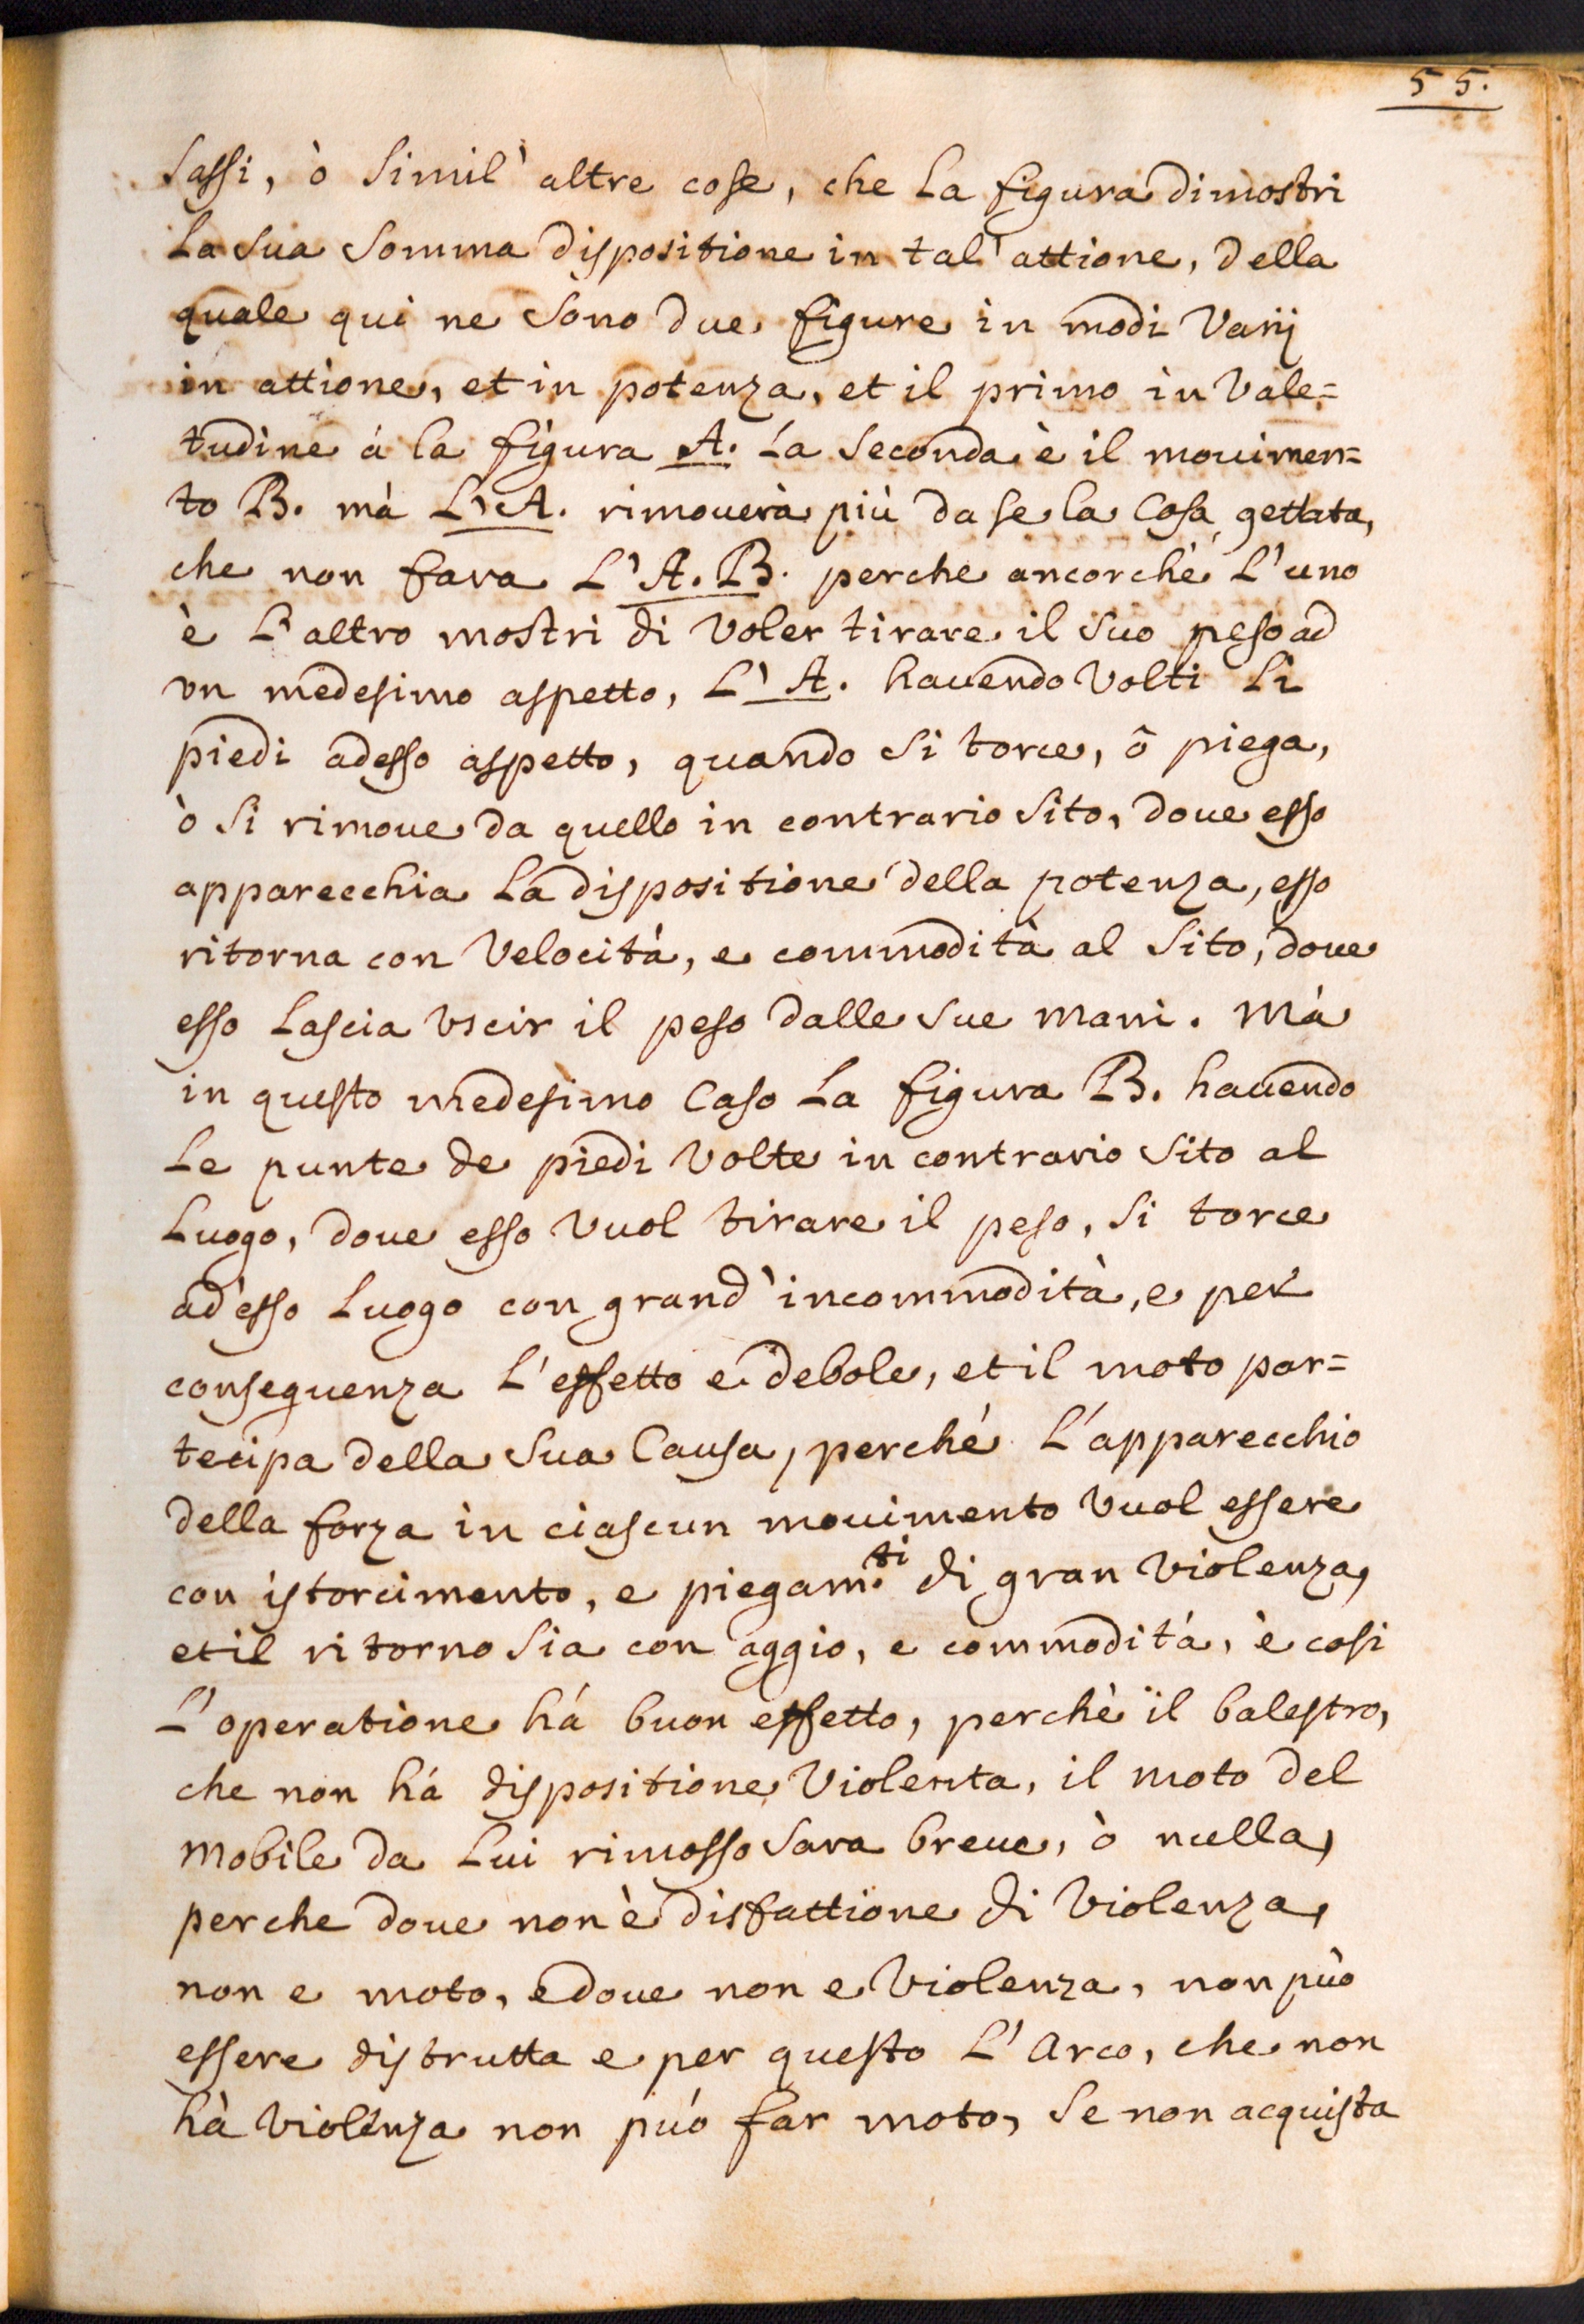 55.
Sassi, ò Simil' altre cose, che La figura dimostri
La Sua Somma dispositione in tal' attione, della
quale qui ne Sono due figure in modi Varij
in attione, et in potenza, et il primo in Vale=
tudine á la figura A. La Seconda è il mouimen=
to B. mà L'A. rimouerà più da se la Cosa gettata,
che non fara L'A.B. perche ancorchè L'uno
è L'altro mostri di Voler tirare il Suo peso ad
vn medesimo aspetto, L'A. hauendo Volti Li
piedi adesso aspetto, quando Si torce, ò piega,
ò Si rimoue da quello in contrario Sito, doue esso
apparecchia La dispositione della potenza, esso
ritorna con Velocitá, e commodità al Sito, doue
esso Lascia Vscir il peso dalle Sue mani. Mà
in questo medesimo Caso La figura B. hauendo
Le punte de piedi Volte in contrario Sito al
Luogo, doue esso Vuol tirare il peso, Si torce
ad esso Luogo con grand' incommodità, e per
conseguenza L'effetto e debole, et il moto par=
tecipa della Sua Causa, perché L'apparecchio
della forza in ciascun mouimento Vuol essere
con istorcimento, e piegam.ti di gran Violenza,
et il ritorno Sia con aggio, e commoditá, è cosi
L'operatione há buon effetto, perchè il balestro,
che non há dispositione Violenta, il moto del
Mobile da Lui rimosso Sara breue, ò nulla,
perche doue non è disfattione di Violenza,
non e moto, e doue non e Violenza, non può
essere distrutta e per questo L'Arco, che non
hà Violenza non púo far moto, Se non acquista